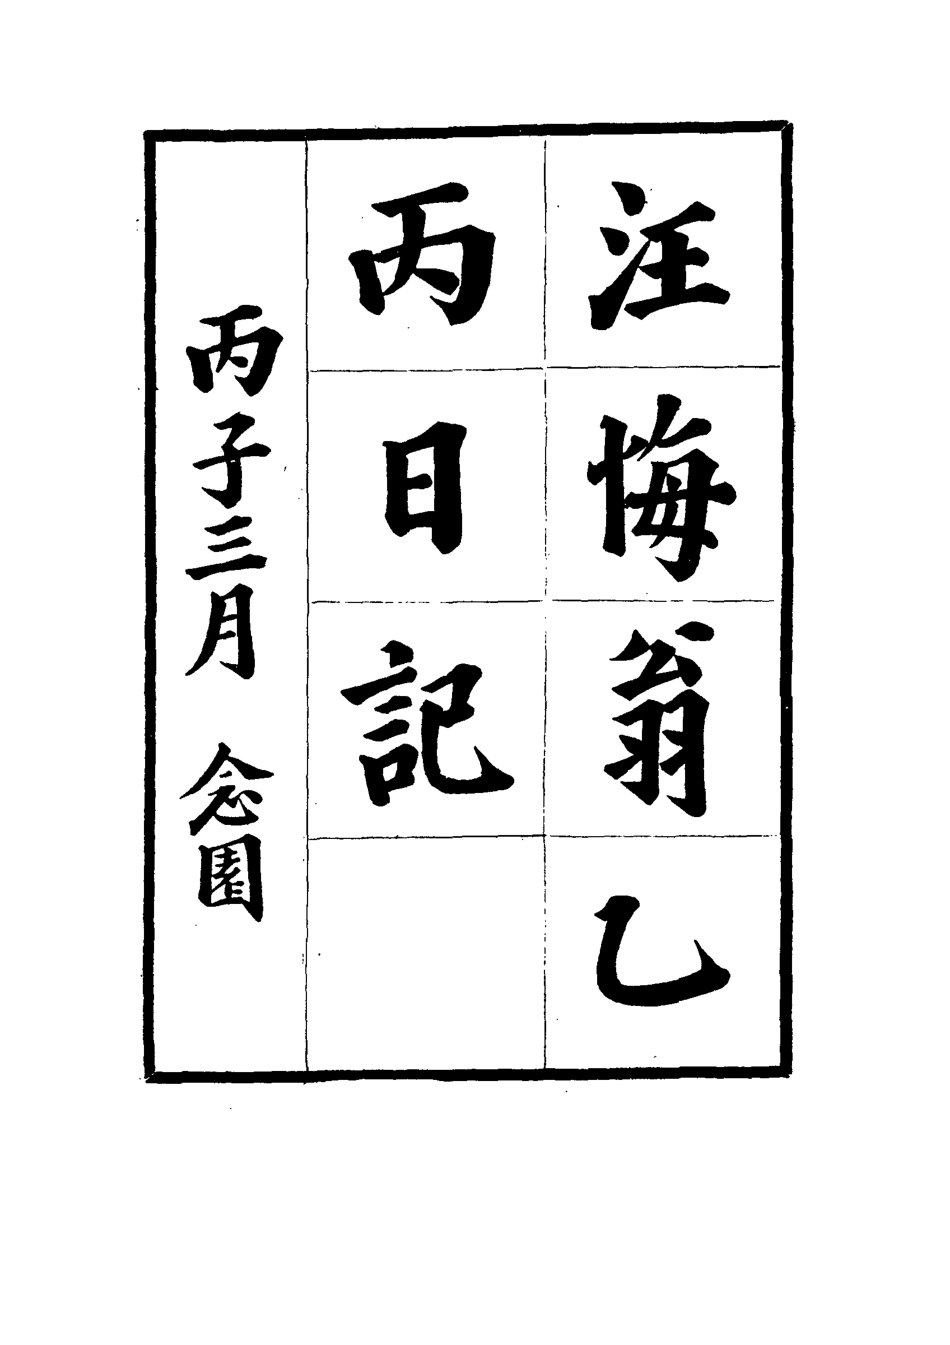 汪悔翁乙
丙日記
丙子三月 念園